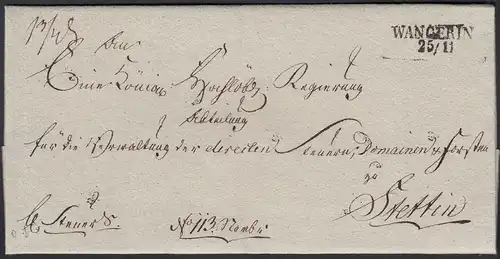 WANGERIN
25/11
An
Eine Königl. Hochlöbl. Regierung
Abteilung
für die Verwaltung der directen Steuern, Domainen & Forsten
zu
Stettin
Steuer S. No 113. Novbr.